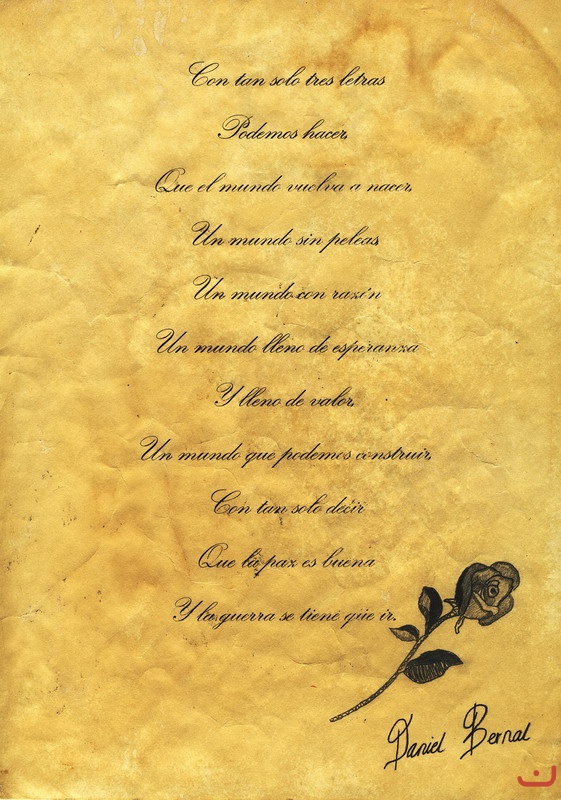 Con tan solo tres letras
Podemos hacer,
Que el mundo vuelva a nacer,
Un mundo sin peleas
Un mundo con razón
Un mundo lleno de esperanza
Y lleno de valor,
Un mundo que podemos construir,
Con tan solo decir
Que la paz es buena
Y la guerra se tiene que ir.
Daniel Bernal